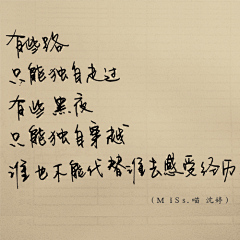 有些路
只能独自走过
有些黑夜
只能独自穿越
谁也不能代替谁去感受经历
(M iSs.喵 沈婷)